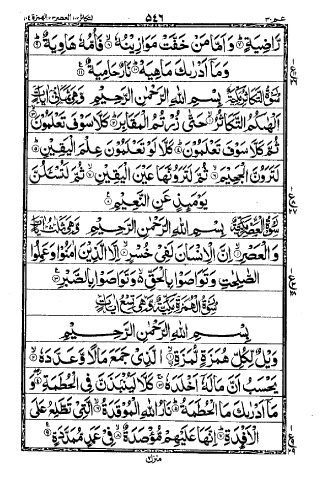 التكاثر ١٠٢ العصر ١٠٣ الهمزة ١٠٤ ٥٤٦ عم ٣٠
رَّاضِيَةٍ ۝ وَاَمَّا مَنْ خَفَّتْ مَوَازِيْنُهٗ ۝ فَاُمُّهٗ هَاوِيَةٌ ۝
وَمَاۤ اَدْرٰىكَ مَاهِيَهْ ۝ نَارٌ حَامِيَةٌ ۝
سُوْرَةُ التَّكَاثُرِ مَكِّيَّةٌ بِسْمِ اللهِ الرَّحْمٰنِ الرَّحِيْمِ وَهِيَ ثَمَانِيْ اٰيَاتٍ
اَلْهٰىكُمُ التَّكَاثُرُ ۝ حَتّٰى زُرْتُمُ الْمَقَابِرَ ۝ كَلَّا سَوْفَ تَعْلَمُوْنَ ۝
ثُمَّ كَلَّا سَوْفَ تَعْلَمُوْنَ ۝ كَلَّا لَوْ تَعْلَمُوْنَ عِلْمَ الْيَقِيْنِ ۝
لَتَرَوُنَّ الْجَحِيْمَ ۝ ثُمَّ لَتَرَوُنَّهَا عَيْنَ الْيَقِيْنِ ۝ ثُمَّ لَتُسْـَٔلُنَّ
يَوْمَىِٕذٍ عَنِ النَّعِيْمِ ۝
سُوْرَةُ الْعَصْرِ مَكِّيَّةٌ بِسْمِ اللهِ الرَّحْمٰنِ الرَّحِيْمِ وَهِيَ ثَلٰثُ اٰيَاتٍ
وَالْعَصْرِ ۝ اِنَّ الْاِنْسَانَ لَفِيْ خُسْرٍ ۝ اِلَّا الَّذِيْنَ اٰمَنُوْا وَعَمِلُوا
الصّٰلِحٰتِ وَتَوَاصَوْا بِالْحَقِّ ۙ وَتَوَاصَوْا بِالصَّبْرِ ۝
سُوْرَةُ الْهُمَزَةِ مَكِّيَّةٌ وَهِيَ تِسْعُ اٰيَاتٍ
بِسْمِ اللهِ الرَّحْمٰنِ الرَّحِيْمِ
وَيْلٌ لِّكُلِّ هُمَزَةٍ لُّمَزَةٍ ۝ اۨلَّذِيْ جَمَعَ مَالًا وَّعَدَّدَهٗ ۝
يَحْسَبُ اَنَّ مَالَهٗۤ اَخْلَدَهٗ ۝ كَلَّا لَيُنْۢبَذَنَّ فِي الْحُطَمَةِ ۝ وَ
مَاۤ اَدْرٰىكَ مَا الْحُطَمَةُ ۝ نَارُ اللهِ الْمُوْقَدَةُ ۝ الَّتِيْ تَطَّلِعُ عَلَى
الْاَفْـِٕدَةِ ۝ اِنَّهَا عَلَيْهِمْ مُّؤْصَدَةٌ ۝ فِيْ عَمَدٍ مُّمَدَّدَةٍ ۝
منزل